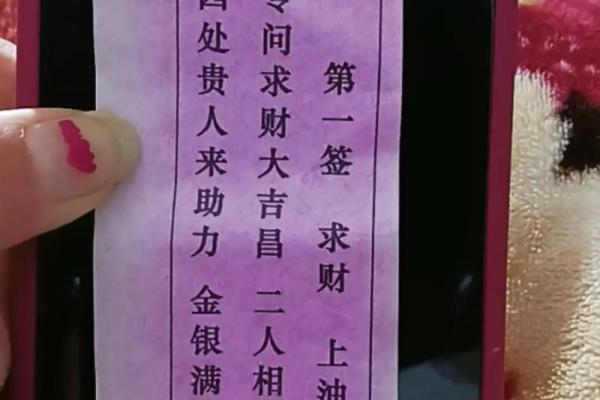 第一签 求财 上油
问求财大吉昌 二人相
四处贵人来助力 金银满